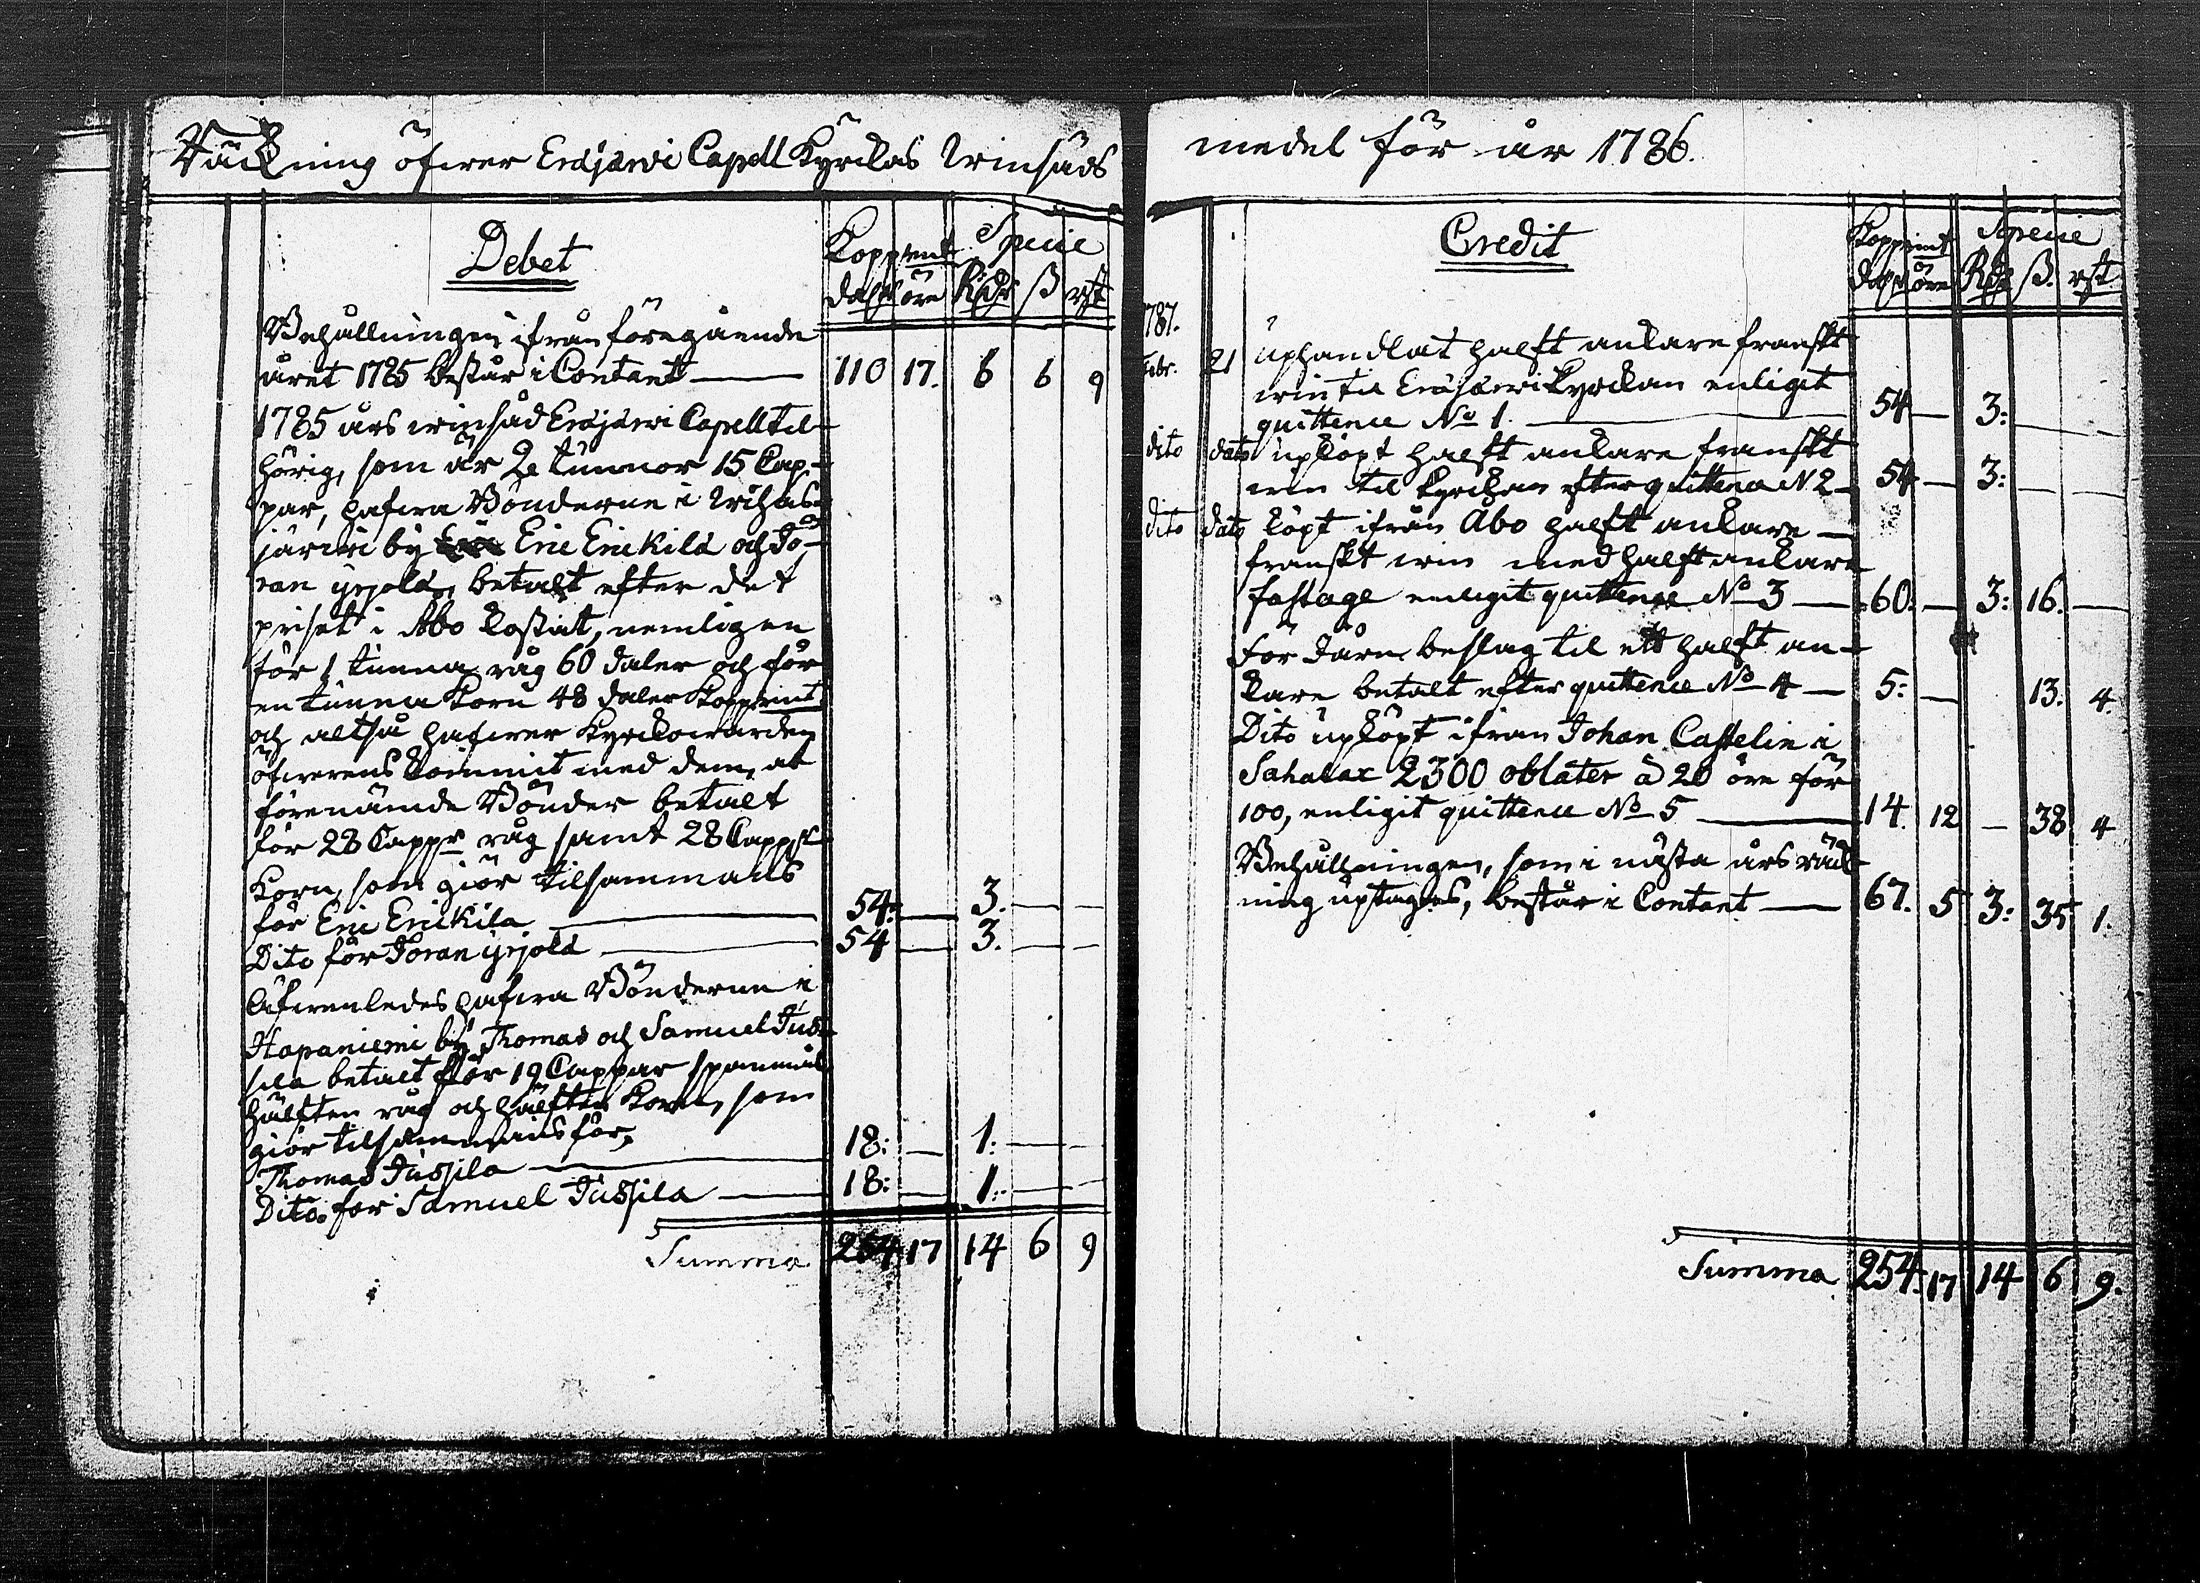 Räckning öfwer Eräjärwi Capell Kyrckas winsäds
Debet
Koppmt Specie
dalr öre Rdr ß rst
Behållningen ifrån föregående
året 1785 består i Contant — 110 17. 6 6 9
1785 års winsäd Eräjärwi Capell til-
hörig, som är 2 tunnor 15 Cap-
par, hafwa Bönderne i Wihas-
järwi by Eric Erickilä och Jö-
ran yrjölä, betalt efter det
priset i Åbo kostat, nemligen
för 1 tunna råg 60 daler och för
en tunna korn 48 daler koppmt
och altså hafwer kyrckowärden
öfwerenskommit med dem, at
förenämde Bönder betalt
för 28 Cappr råg samt 28 Cappr
korn, som giör tilsammans
för Eric Erickila — 54: — 3. — —
Dito för Jöran yrjölä — 54 — 3. — —
Äfwenledes hafwa Bönderne i
Hapaniemi by Thomas och Samuel Jus-
sila betalt för 19 Cappar spanmål
hälften råg och hälften korn, som
giör tilsammans för,
Thomas Jussila — 18: — 1: — —
Dito för Samuel Jussila — 18: — 1: — —
Summa 254 17 14 6 9
medel för år 1786.
Credit
Koppmt Specie
dalr öre Rdr ß. rst
787.
Febr. 21 uphandlat halft anckare franskt
win til Eräjärwi kyrckan enligit
quittence No 1. — 54 — 3: — —
dito dato upköpt halft anckare franskt
win til kyrckan efter quittence N 2 — 54 — 3: — —
dito dato köpt ifrån Åbo halft anckare —
franskt win med halft anckare
fastage enligit quittence No 3 — 60: — 3: 16. —
För Järn beslag til ett halft an-
kare betalt efter quittence No 4 — 5: — 13. 4.
Dito upköpt ifrån Johan Castelin i
Sahalax 2300 oblater à 20 öre för
100, enligit quittence No 5 — 14. 12 — 38 4
Behållningen, som i nästa års räck-
ning uptages, består i Contant — 67. 5 3: 35 1.
Summa 254. 17 14 6 9.